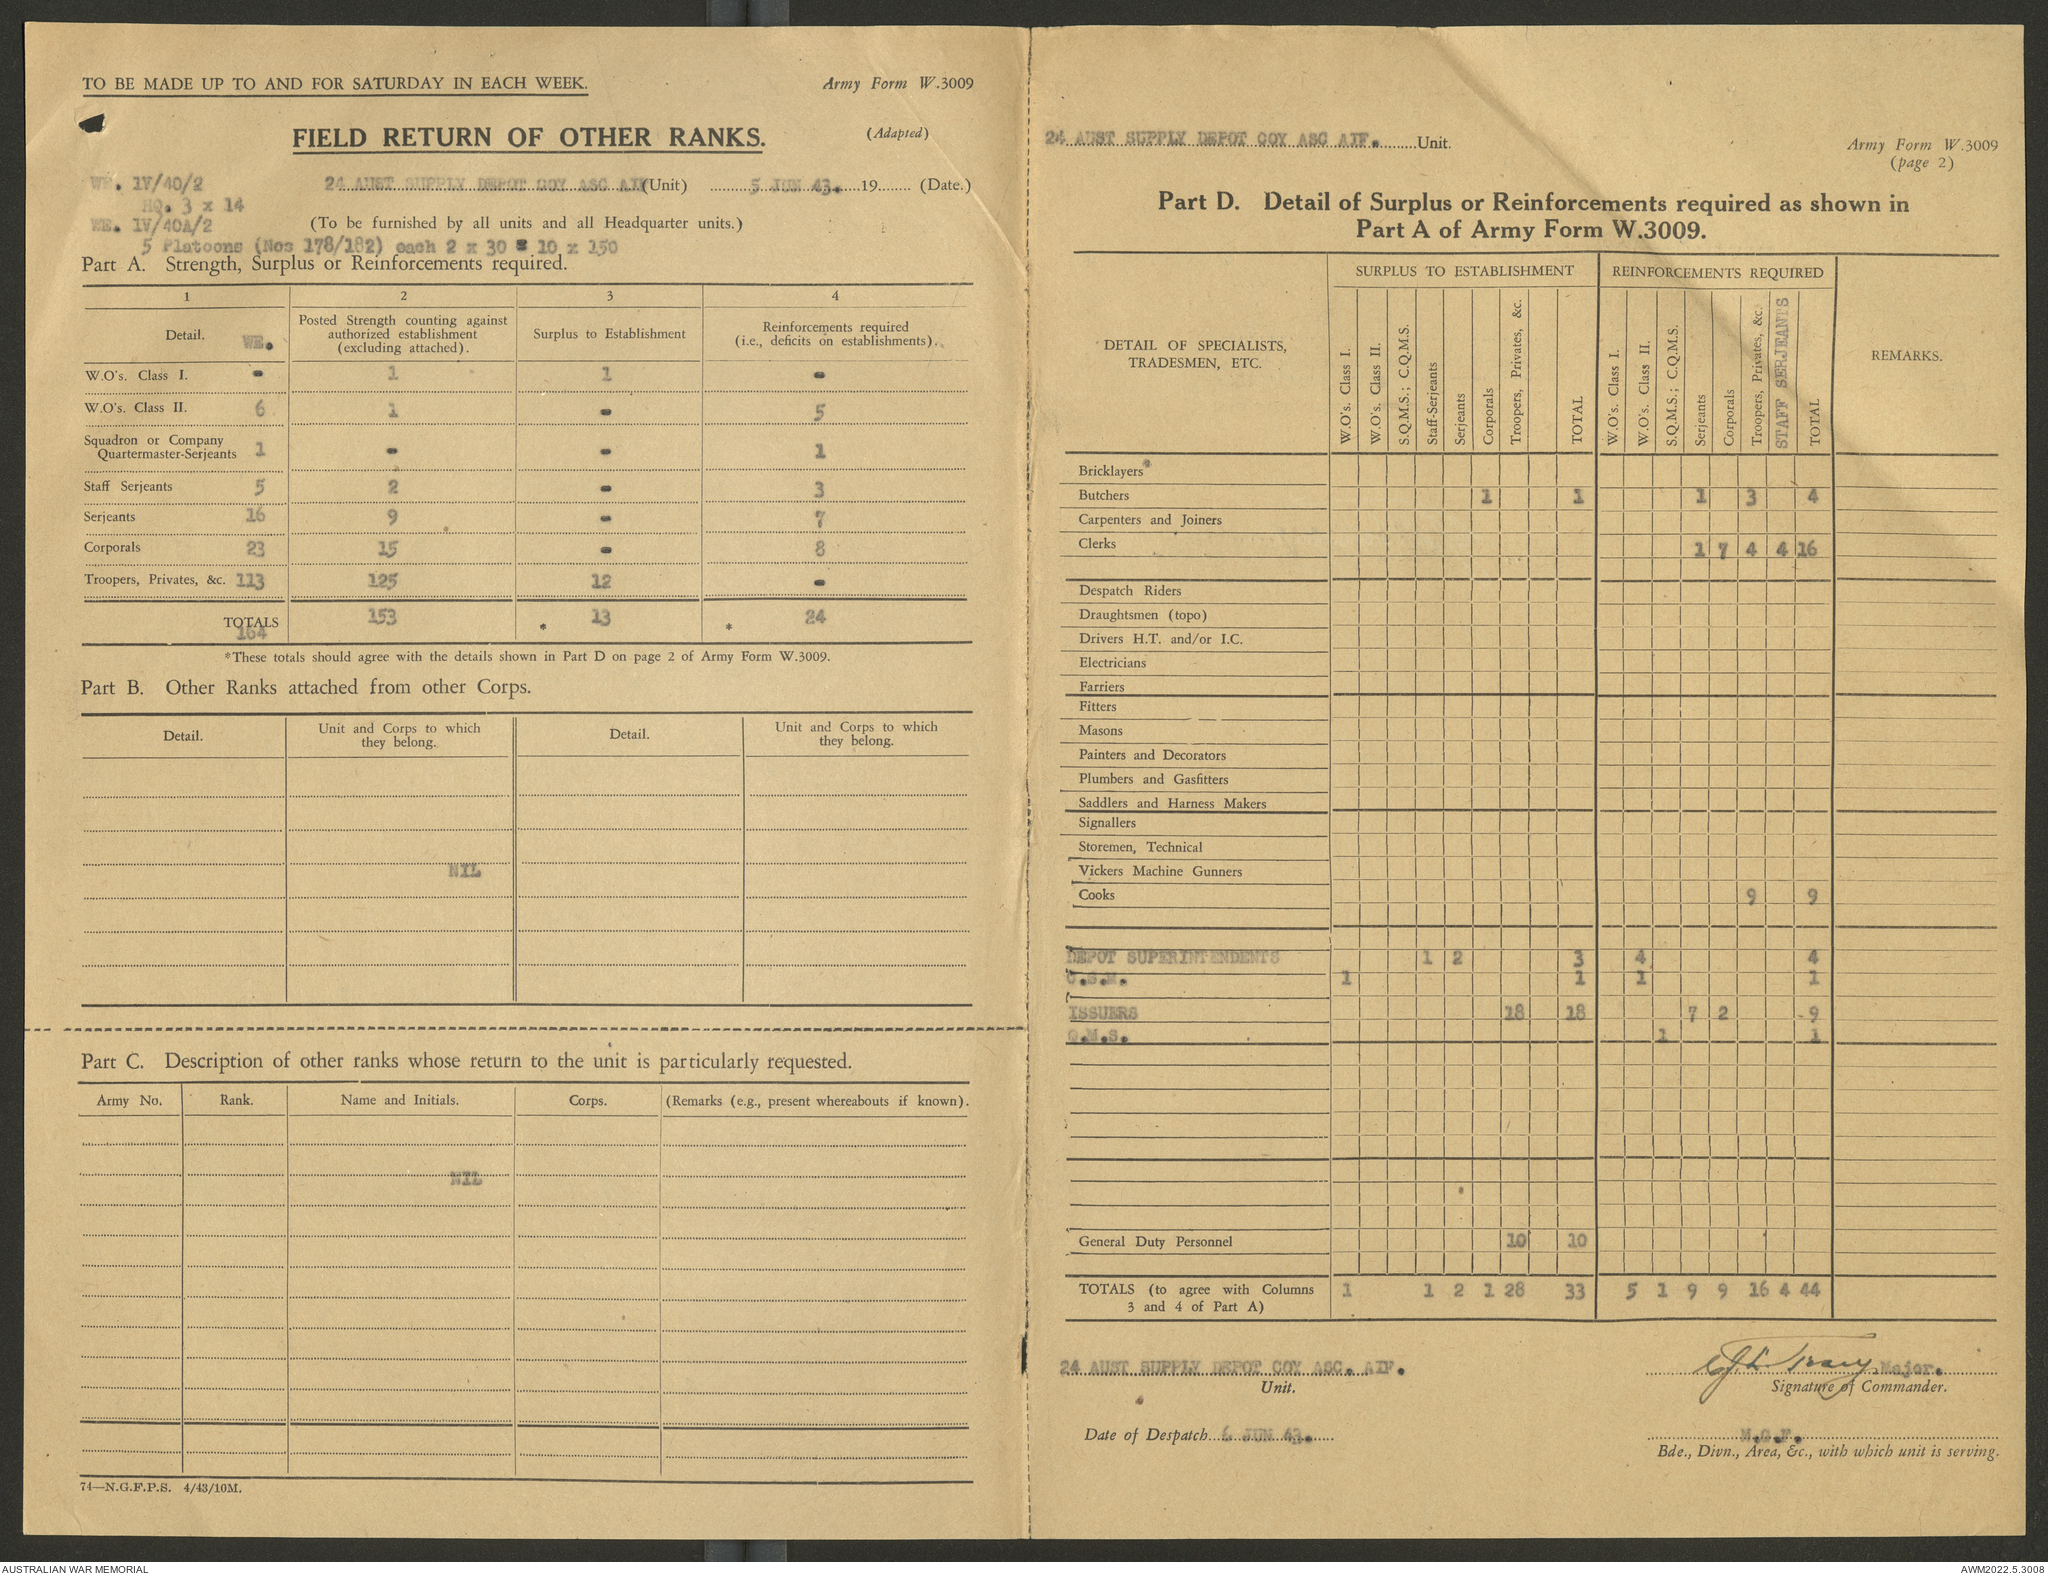 TO BE MADE UP TO AND FOR SATURDAY IN EACH WEEK.
Army Form W.3009
(Adapted)
FIELD RETURN OF OTHER RANKS.
WE. 1V/40/2
24 AUST SUPPLY DEPOT COY ASC AIF (Unit) 5 JUN 43. 19 (Date.)
HQ. 3 x 14
WE. 1V/40A/2
(To be furnished by all units and all Headquarter units.)
5 Platoons (Nos 178/182) each 2 x 30 = 10 x 150
Part A. Strength, Surplus or Reinforcements required.
1 2 3 4
Detail. WE.
Posted Strength counting against authorized establishment (excluding attached).
Surplus to Establishment
Reinforcements required (i.e., deficits on establishments).
W.O's. Class I. - 1 1 -
W.O's. Class II. 6 1 - 5
Squadron or Company
Quartermaster-Serjeants 1 - - 1
Staff Serjeants 5 2 - 3
Serjeants 16 9 - 7
Corporals 23 15 - 8
Troopers, Privates, &c. 113 125 12 -
TOTALS 164 153 * 13 * 24
*These totals should agree with the details shown in Part D on page 2 of Army Form W.3009.
Part B. Other Ranks attached from other Corps.
Detail.
Unit and Corps to which they belong.
Detail.
Unit and Corps to which they belong.
NIL
Part C. Description of other ranks whose return to the unit is particularly requested.
Army No. Rank. Name and Initials. Corps. (Remarks (e.g., present whereabouts if known).
NIL
74—N.G.F.P.S. 4/43/10M.
24 AUST SUPPLY DEPOT COY ASC AIF. Unit.
Army Form W.3009
(page 2)
Part D. Detail of Surplus or Reinforcements required as shown in
Part A of Army Form W.3009.
DETAIL OF SPECIALISTS, TRADESMEN, ETC.
SURPLUS TO ESTABLISHMENT
W.O's. Class I.
W.O's. Class II.
S.Q.M.S.; C.Q.M.S.
Staff-Serjeants
Serjeants
Corporals
Troopers, Privates, &c.
TOTAL
REINFORCEMENTS REQUIRED
W.O's. Class I.
W.O's. Class II.
S.Q.M.S.; C.Q.M.S.
Serjeants
Corporals
Troopers, Privates, &c.
STAFF SERJEANTS
TOTAL
REMARKS.
Bricklayers
Butchers 1 1 1 3 4
Carpenters and Joiners
Clerks 1 7 4 4 16
Despatch Riders
Draughtsmen (topo)
Drivers H.T. and/or I.C.
Electricians
Farriers
Fitters
Masons
Painters and Decorators
Plumbers and Gasfitters
Saddlers and Harness Makers
Signallers
Storemen, Technical
Vickers Machine Gunners
Cooks 9 9
DEPOT SUPERINTENDENTS 1 2 3 4 4
C.S.M. 1 1 1 1
ISSUERS 18 18 7 2 9
Q.M.S. 1 1
General Duty Personnel 10 10
TOTALS (to agree with Columns
3 and 4 of Part A) 1 1 2 1 28 33 5 1 9 9 16 4 44
24 AUST SUPPLY DEPOT COY ASC. AIF.
Unit.
Major.
Signature of Commander.
Date of Despatch 6 JUN 43.
N.G.F.
Bde., Divn., Area, &c., with which unit is serving.
AUSTRALIAN WAR MEMORIAL
AWM2022.5.3008